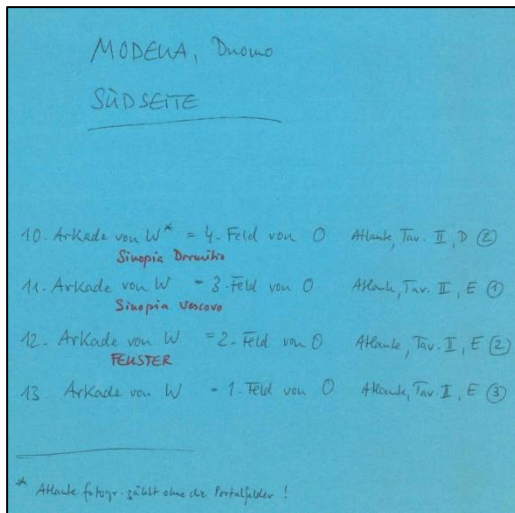 MODENA, Duomo
SÜDSEITE
10. Arkade von W* = 4. Feld von O Atlante, Tav. II, D ②
Sinopia Dormitio
11. Arkade von W = 3. Feld von O Atlante, Tav. II, E ①
Sinopia Vescovo
12. Arkade von W = 2. Feld von O Atlante, Tav. II, E ②
FENSTER
13. Arkade von W = 1. Feld von O Atlante, Tav. II, E ③
* Atlante fotogr. zählt ohne die Portalfelder !